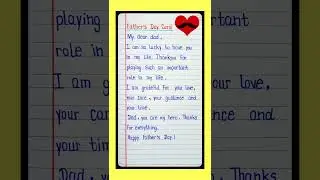 Father's Day Card
My dear dad,
I am so lucky to have you
in my life. Thankyou for
playing such an important
role in my life.
I am grateful for your love,
your care, your guidance and
your time.
Dad, you are my hero. Thanks
for everything.
Happy Father's Day!
playing
important
role in m
I am gra
ur love,
your car
ce and
your tim
Dad, you
Thanks